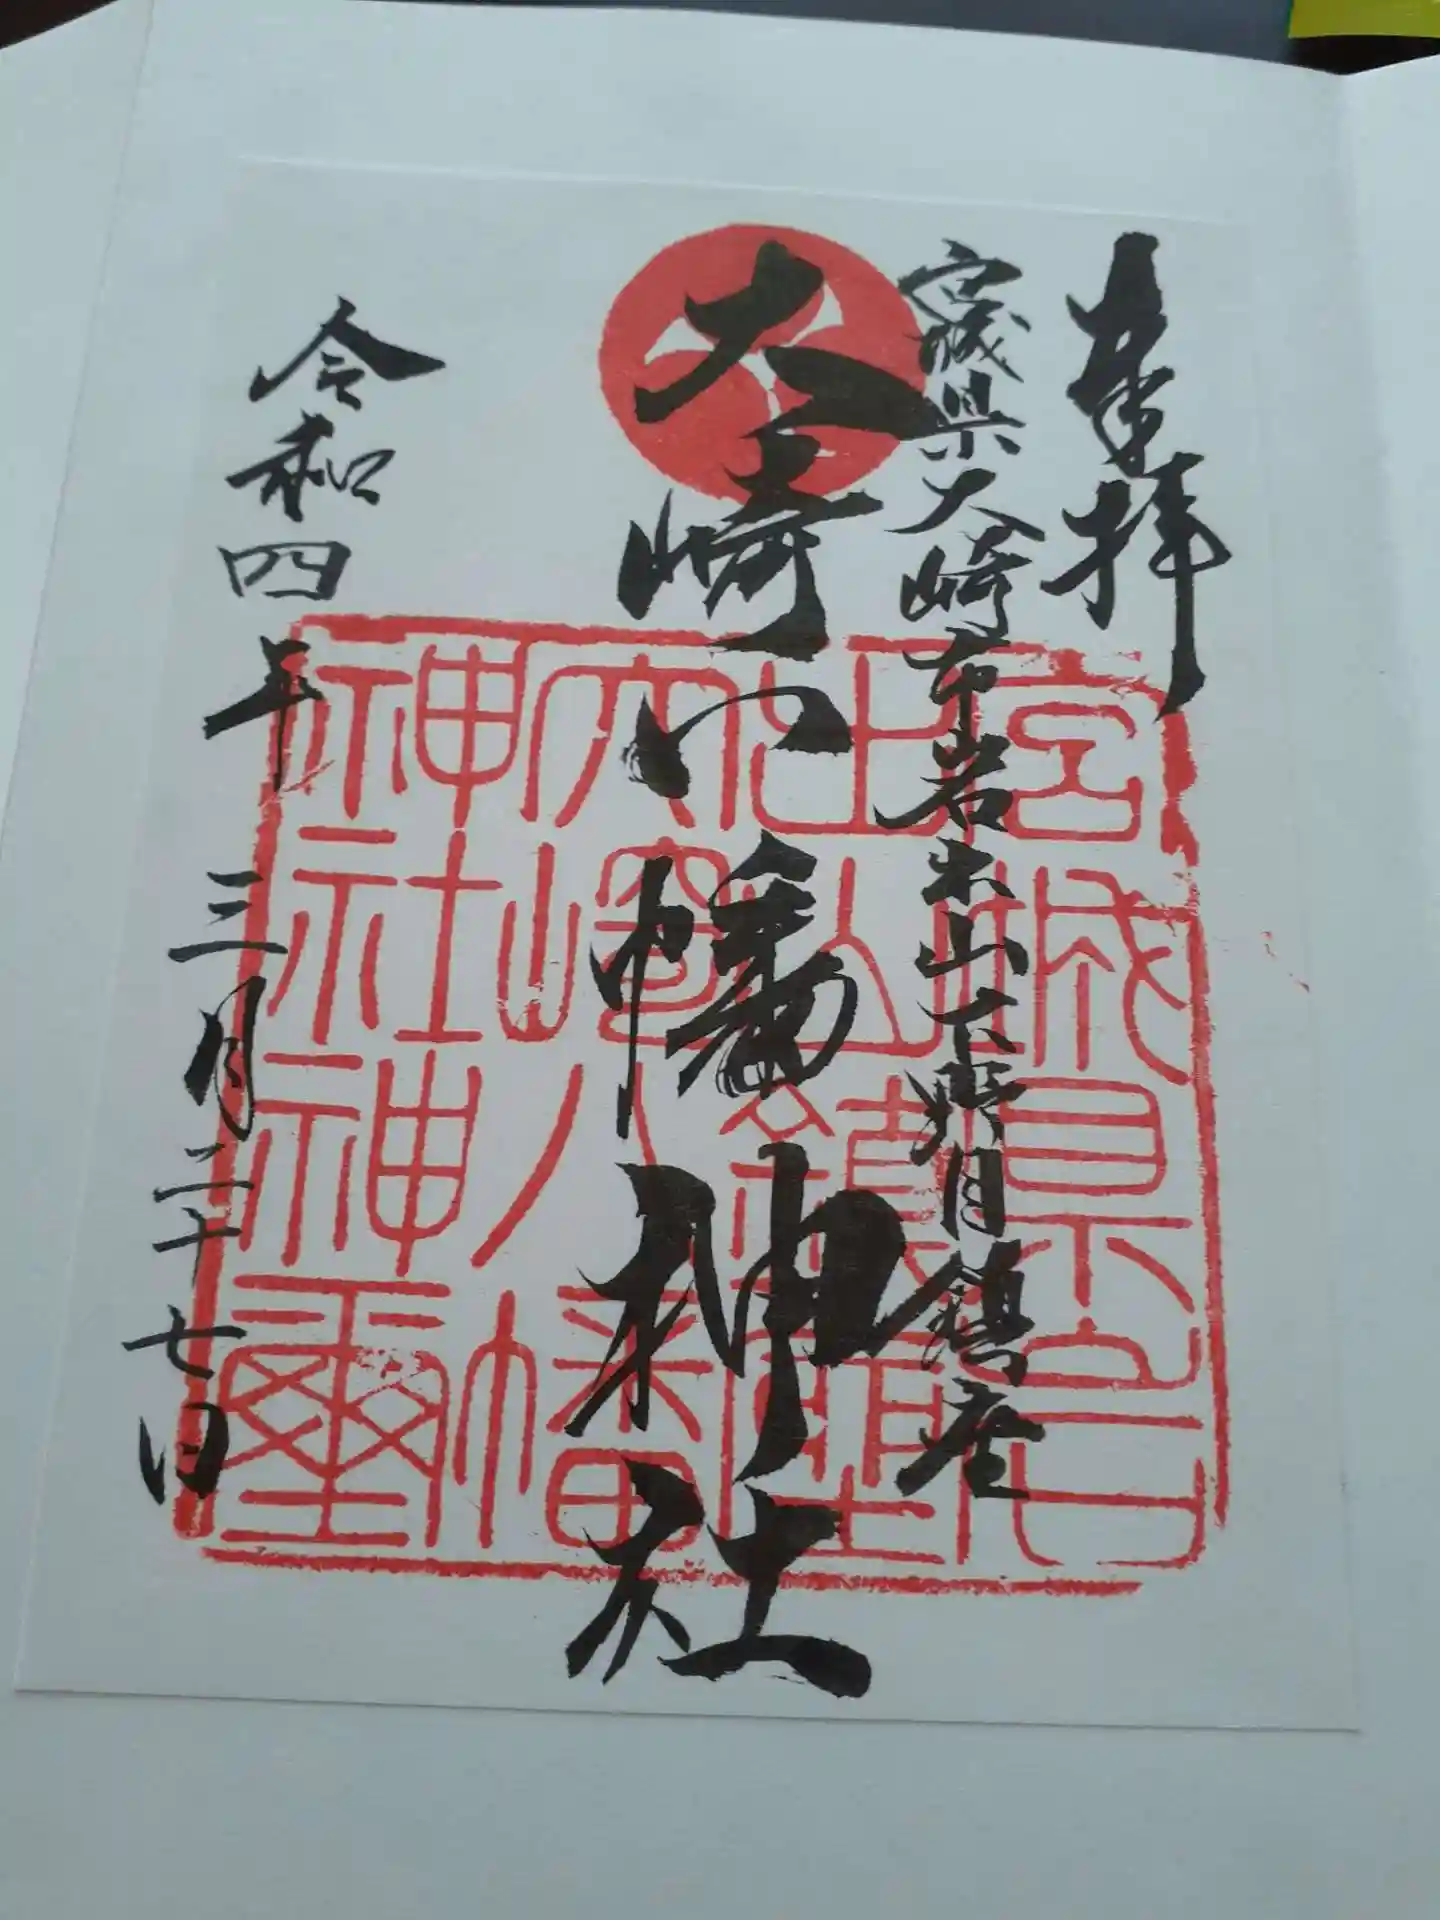 奉拝
宮城県大崎市岩出山下野目鎮座
大崎八幡神社
令和四年三月二十七日
宮城県宮
出山鎮座
大崎八幡
神社神璽